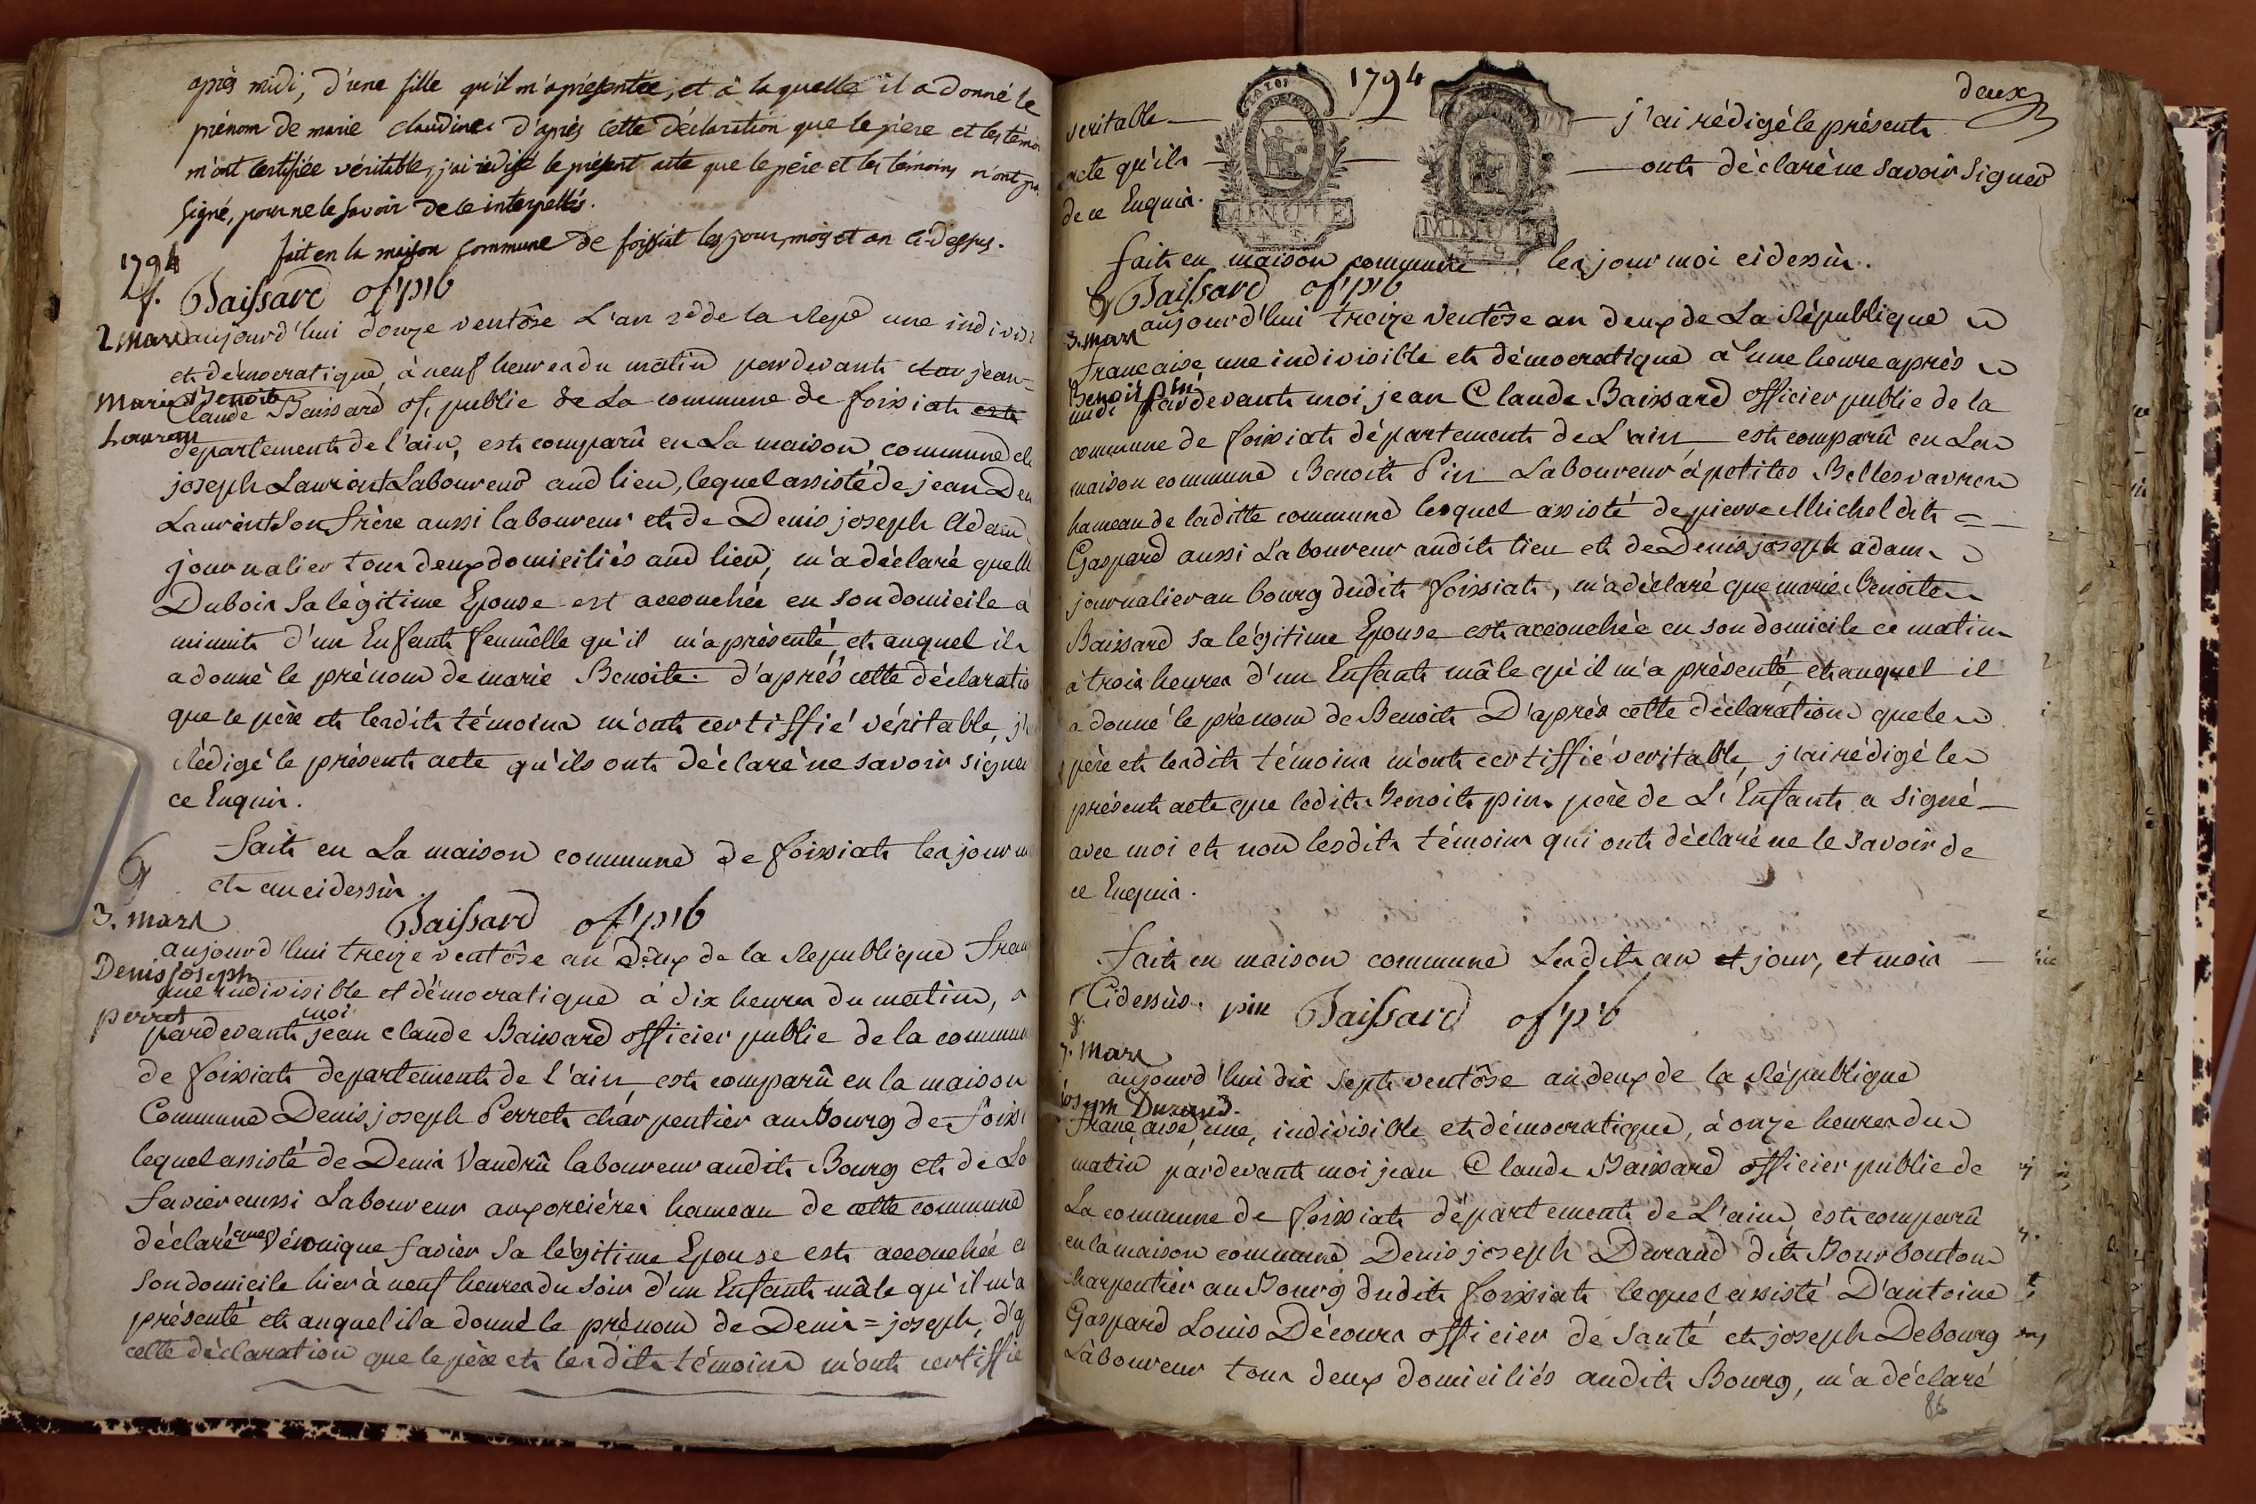 après midi, d'une fille qu'il m'a présentée, et à laquelle il a donné le
prénom de marie claudine. d'après cette déclaration que le père et les témoi
m'ont certifiée véritable, j'ai rédigé le présent acte que le père et les témoins n'ont pas
signé, pour ne le savoir de ce interpellés.
fait en la maison commune de foissiat les jour, mois et an ci-dessus.
1794
f. Baissard of. p'b
2 mars aujourd'hui douze ventôse L'an 2e de la Repe une indivisi
et démocratique, à neuf heures du matin pardevant jean=
Marie Benoite
Claude Baissard of. public de La commune de foissiat
Laurent
departement de l'ain, est comparû en La maison commune
joseph Laurent Laboureur aud lieu, lequel assisté de jean Den
Laurent Son frère aussi laboureur et de Denis joseph Adam
journalier tous deux domiciliés aud lieu, m'a déclaré que
Dubois Sa légitime Epouse est accouchée en son domicile a
minuit d'un Enfant femmelle qu'il m'a présenté, et auquel il
a donné le prénom de marie Benoite. d'après cette déclaratio
que le père et lesdits témoins m'ont certiffié véritable, j'
Rédigé le présent acte qu'ils ont déclaré ne savoir signer
ce Enquis.
fait en La maison commune de foissiat les jour m
et an cidessus.
3. mars
Baissard of p'b
aujourd'hui treize ventôse an deux de la Republique fran
Denis joseph
une indivisible et démocratique à dix heures du matin,
perret
moi
pardevant jean claude Baissard officier public de la commun
de foissiat departement de l'ain est comparû en la maison
Commune Denis joseph Perret charpentier au Bourg de foissi
lequel assisté de Denis Vaudrû laboureur audit Bourg et de
favier aussi Laboureur aux orcières hameau de cette commune
déclaré que Véronique favier Sa légitime Epouse est accouchée e
Son domicile hier à neuf heures du soir d'un Enfant mâle qu'il m'a
présenté et auquel il a donné le prénom de Denis=joseph, d'a
cette déclaration que le père et lesdits témoins m'ont certiffié
1794
deux
veritable
j'ai rédigé le présent
acte qu'ils
ont déclaré ne savoir signer
de ce Enquis.
MINUTE
MINUTE
fait en maison commune les jour moi cidessus.
Baissard of p'b
3. mars
aujourd'hui treize ventôse an deux de La République
française, une indivisible et démocratique à une heure après
Benoit pin
midi pardevant moi jean Claude Baissard officier public de la
commune de foissiat département de L'ain est comparû en La
maison commune Benoit Pin Laboureur à petites Bellesvavres
hameau de laditte commune lequel assisté de pierre Michel dit
Gaspard aussi Laboureur audit lieu et de Denis joseph adam
journalier au bourg dudit foissiat, m'a déclaré que marie Benoite
Baissard sa légitime Epouse est accouchée en son domicile ce matin
à trois heures d'un Enfant mâle qu'il m'a présenté, et auquel il
a donné le prénom de Benoit D'après cette déclaration que le
père et lesdits témoins m'ont certiffié veritable, j'ai rédigé le
présent acte que ledit Benoit pin père de L'Enfant a signé
avec moi et non lesdits témoins qui ont déclaré ne le savoir de
ce Enquis.
fait en maison commune Lesdits an et jour, et mois
Cidessus. pin Baissard of p'b
7. Mars
aujourd'hui dix sept ventôse an deux de la République
joseph Durand.
française, une, indivisible et démocratique, à onze heures du
matin pardevant moi jean Claude Baissard officier public de
La commune de foissiat département de L'ain, est comparû
en la maison commune, Denis joseph Durand dit Bourbouton
charpentier au Bourg dudit foissiat lequel assisté D'antoine
Gaspard Louis Décours officier de santé et joseph Debourg
Laboureur tous deux domiciliés audit Bourg, m'a déclaré
86